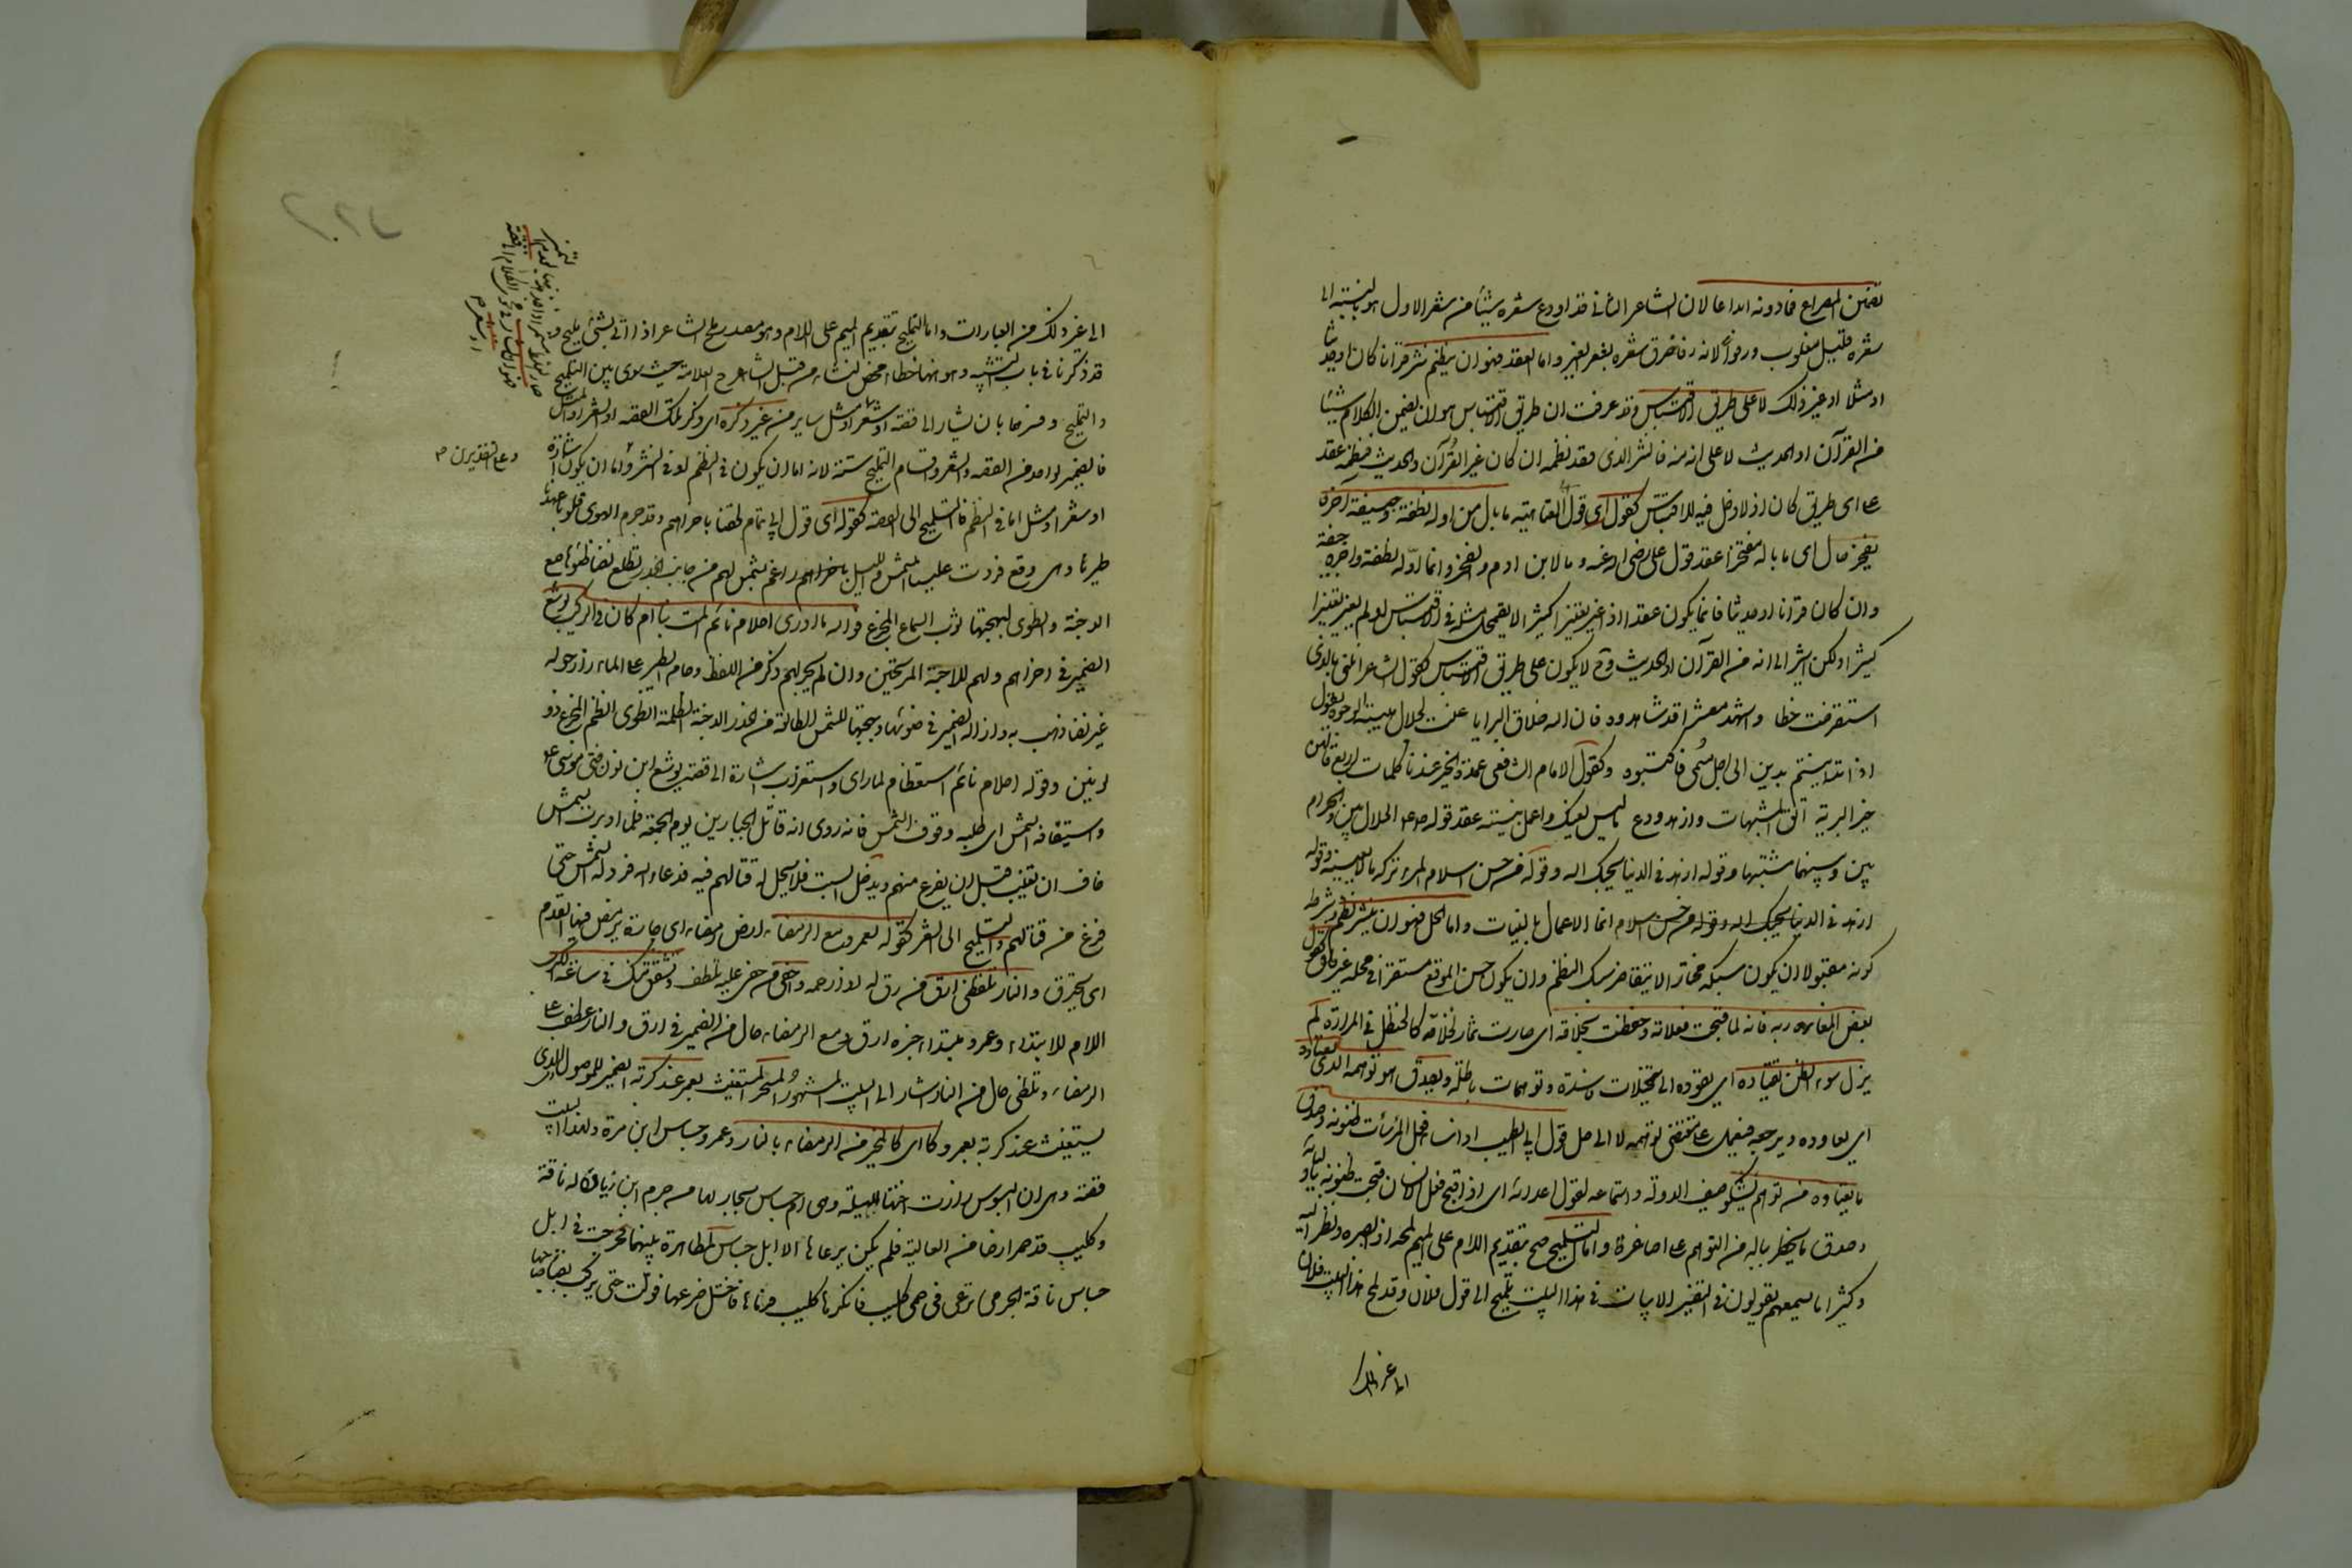 تضمين المصراع فما دونه ايداعا لان الشاعر الثاني قد اودع شعره شيئا من شعر الاول هو بالنسبة الى
شعره قليل مغلوب ورفوا لانه رفا خرق شعره بشعر الغير واما العقد فهو ان ينظم نثر قرآنا كان او حديثا
او مثلا او غير ذلك لا على طريق الاقتباس وقد عرفت ان طريق الاقتباس هو ان يضمن الكلام شيئا
من القرآن او الحديث لا على انه منه فالنثر الذي قصد نظمه ان كان غير القرآن والحديث فنظمه عقد
على اي طريق كان اذ لا دخل فيه للاقتباس كقوله اي قول ابي العتاهية ما بال من اوله نطفة وجيفة آخره
يفخر حال اي ما باله مفتخرا عقد قول علي رضي الله عنه وما لابن ادم والفخر وانما اوله نطفة واخره جيفة
وان كان قرآنا او حديثا فانما يكون عقدا اذا غير تغييرا كثيرا لا يتحمل مثله في الاقتباس او لم يغير تغييرا
كثيرا ولكن اشير الى انه من القرآن او الحديث وح لا يكون على طريق الاقتباس كقول الشاعر انلني بالذي
استقرضت خطا واشهد معشرا قد شاهدوه فان الله خلاق البرايا عنت لجلال هيبته الوجوه يقول
اذا تداينتم بدين الى اجل مسمى فاكتبوه وكقول الامام الشافعي عمدة الخير عندنا كلمات اربع قالهن
خير البرية اتق المشبهات وازهد ودع ما ليس يعنيك واعمل بنيته عقد قوله صلعم الحلال بين والحرام
بين وبينهما مشتبهات وقوله ازهد في الدنيا يحبك الله وقوله من حسن اسلام المرء تركه ما لا يعنيه وقوله
انما الاعمال بالنيات واما الحل فهو ان ينثر نظم وشرط
كونه مقبولا ان يكون سبكه مختارا لا يتقاصر سبك النظم وان يكون حسن الموقع مستقرا في محله غير قلق كقول
بعض المغاربة فانه لما قبحت فعلاته وحنظلت نخلاته اي صارت ثمار نخلاته كالحنظل في المرارة لم
يزل سوء الظن يقتاده اي يقوده الى تخيلات فاسدة وتوهمات باطلة ويصدق هو توهمه الذي يعتاده
اي يعاوده ويرجعه فيعمل على مقتضى توهمه لا الى حل قول ابي الطيب اذا ساء فعل المرء ساءت ظنونه وصدق
ما يعتاده من توهم يشكو سيف الدولة واستماعه لقول اعدائه اي اذا قبح فعل الانسان قبحت ظنونه
وصدق ما يخطر بباله من التوهم على اصاغره واما التلميح صح بتقديم اللام على الميم من لمحه اذا ابصره ونظر اليه
وكثيرا ما تسمعهم يقولون في تفسير الابيات في هذا البيت تلميح الى قول فلان وقد لمح هذا البيت فلان
الى غير ذلك
الى غير ذلك من العبارات واما التمليح بتقديم الميم على اللام وهو مصدر ملح الشاعر اذا اتى بشيء مليح و
قد ذكرنا في باب التشبيه وهو انها خطاء محض نشاء من قبل الشارح العلامة حيث سوى بين التلميح
والتمليح وفسرهما بان يشار الى قصة او شعر او مثل ساير من غير ذكره اي ذكر تلك القصة او الشعر او المثل
فالضمير لواحد من القصة والشعر واقسام التلميح ستة لانه اما ان يكون في النظم او في النثر واما ان يكون اشارة
او شعر او مثل اما في النظم فالتلميح الى القصة كقوله اي قول ابي تمام لحقنا باخراهم وقد حوم الهوى قلوبا عهدنا
طيرها وهي وقع فردت علينا الشمس والليل باخراهم راغم بشمس لهم من جانب الخدر تطلع نضا ضوئها صبغ
الدجنة وانطوى لبهجتها ثوب السماء المجزع فوالله ما ادري احلام نائم المت بنا ام كان في الركب يوشع
الضمير في اخراهم ولهم للاحبة المرتحلين وان لم يجر لهم ذكر في اللفظ وحام الطير على الماء اذا دار حوله
غير نضا ذهب به وازاله الضمير في ضوئها وبهجتها للشمس الطالعة من الخدر الدجنة الظلمة انطوى انضم المجزع ذو
لونين وقوله احلام نائم استعظام لما راى واستغراب اشارة الى قصة يوشع ابن نون فتى موسى ع
واستيقافه الشمس اي طلبه وقوف الشمس فانه روى انه قاتل الجبارين يوم الجمعة فلما ادبرت الشمس
خاف ان تغيب قبل ان يفرغ منهم ويدخل السبت فلا يحل له قتالهم فيه فدعا الله فرد له الشمس حتى
فرغ من قتالهم والتلميح الى الشعر كقوله لعمرو مع الرمضاء ارض رمضاء اي حارة يرمض فيها القدم
اي يحترق والنار تلتظى ارق من رق له اذا رحمه واحفى من حفي عليه تلطف وتشفق منك في ساعة الكرب
اللام للابتداء وعمرو مبتداء خبره ارق ومع الرمضاء حال من الضمير في ارق والنار عطف على
الرمضاء وتلتظى حال من النار اشار الى البيت المشهور المستجير المستغيث بعمرو عند كربته الضمير للموصول الذي
يستغيث عند كربته بعمرو كا اي كالمستجير من الرمضاء بالنار وعمرو جساس ابن مرة ولهذا البيت
قصة وهي ان البسوس زارت اختها الهيلة وهي ام جساس بجار لها من جرم ابن زبان له ناقة
وكليب قد حمى ارضا من العالية فلم يكن يرعاها الا ابل جساس لمصاهرة بينهما فخرجت في ابل
جساس ناقة الجرمي ترعى في حمى كليب فانكرها كليب فرماها فاختل ضرعها فولت حتى بركت بفناء صاحبها
وعلى التقديرين م